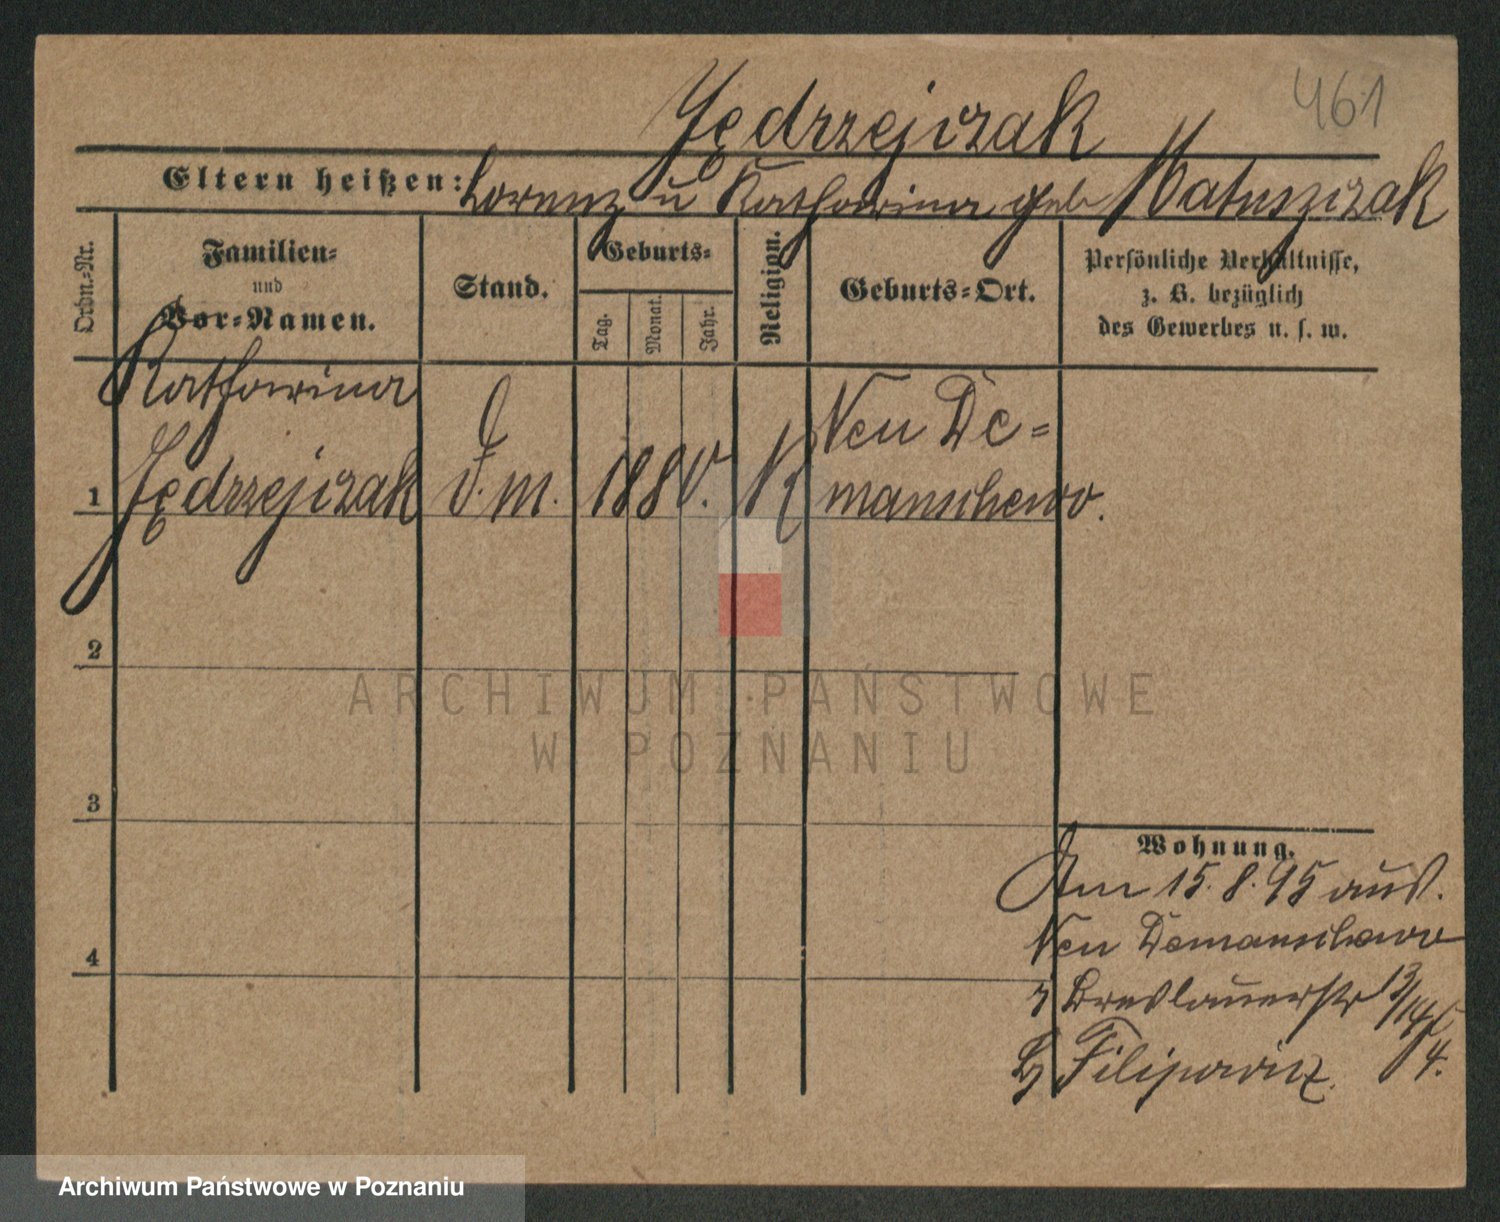 461
Jędrzejczak
Eltern heißen: Lorenz u Katharina geb Matuszczak
Ordn.-Nr.
Familien-
und
Vor-Namen.
Stand.
Geburts-
Tag.
Monat.
Jahr.
Religion.
Geburts-Ort.
Persönliche Verhältnisse,
z. B. bezüglich
des Gewerbes u. s. w.
Katharina
Jędrzejczak
1
D. M.
1880.
K
Neu De-
manschewo.
2
3
4
Wohnung.
Am 15.8.95 aus.
Neu Demanschewo
Breslauerstr 13/14
4.
b/ Filipowicz.
ARCHIWUM PAŃSTWOWE
W POZNANIU
Archiwum Państwowe w Poznaniu